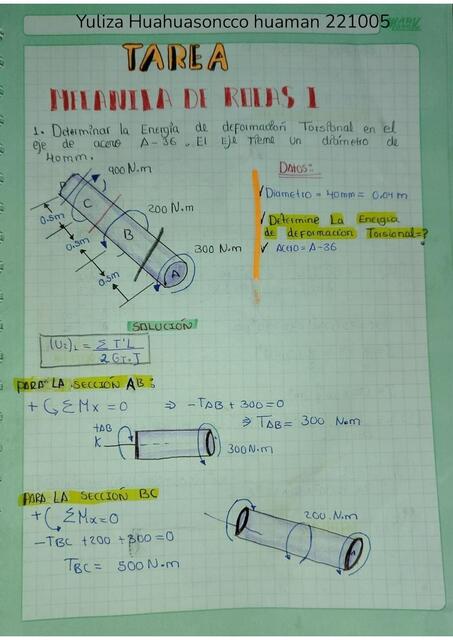 Yuliza Huahuasoncco huaman 221005
TAREA
MECANICA DE ROCAS I
1. Determinar la Energía de deformación Torsional en el
eje de acero A-36. El Eje Tieme un diámetro de
40mm.
DATOS:
900 N.m
C
0.5m
200 N.m
B
0.5m
300 N.m
A
0.5m
✓ Diametro = 40mm = 0.04 m
✓ Determine La Energia
de deformacion Torsional=?
✓ Acero = A-36
SOLUCIÓN
= Σ T²L
2G.J
PARA LA SECCIÓN AB:
+ ΣMx = 0 ⇒ -TAB + 300 = 0
⇒ TAB = 300 N.m
TAB
300 N.m
PARA LA SECCIÓN BC
+ ΣMx = 0
-TBC + 200 + 300 = 0
TBC = 500 N.m
200 N.m